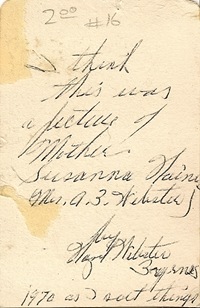 2 00
#16
I think
this was
a picture of
Mother.
Susanna Haine
(Mrs. A. B. Webster)
by
Hazel Webster
Byrnes
1970 as I sort things